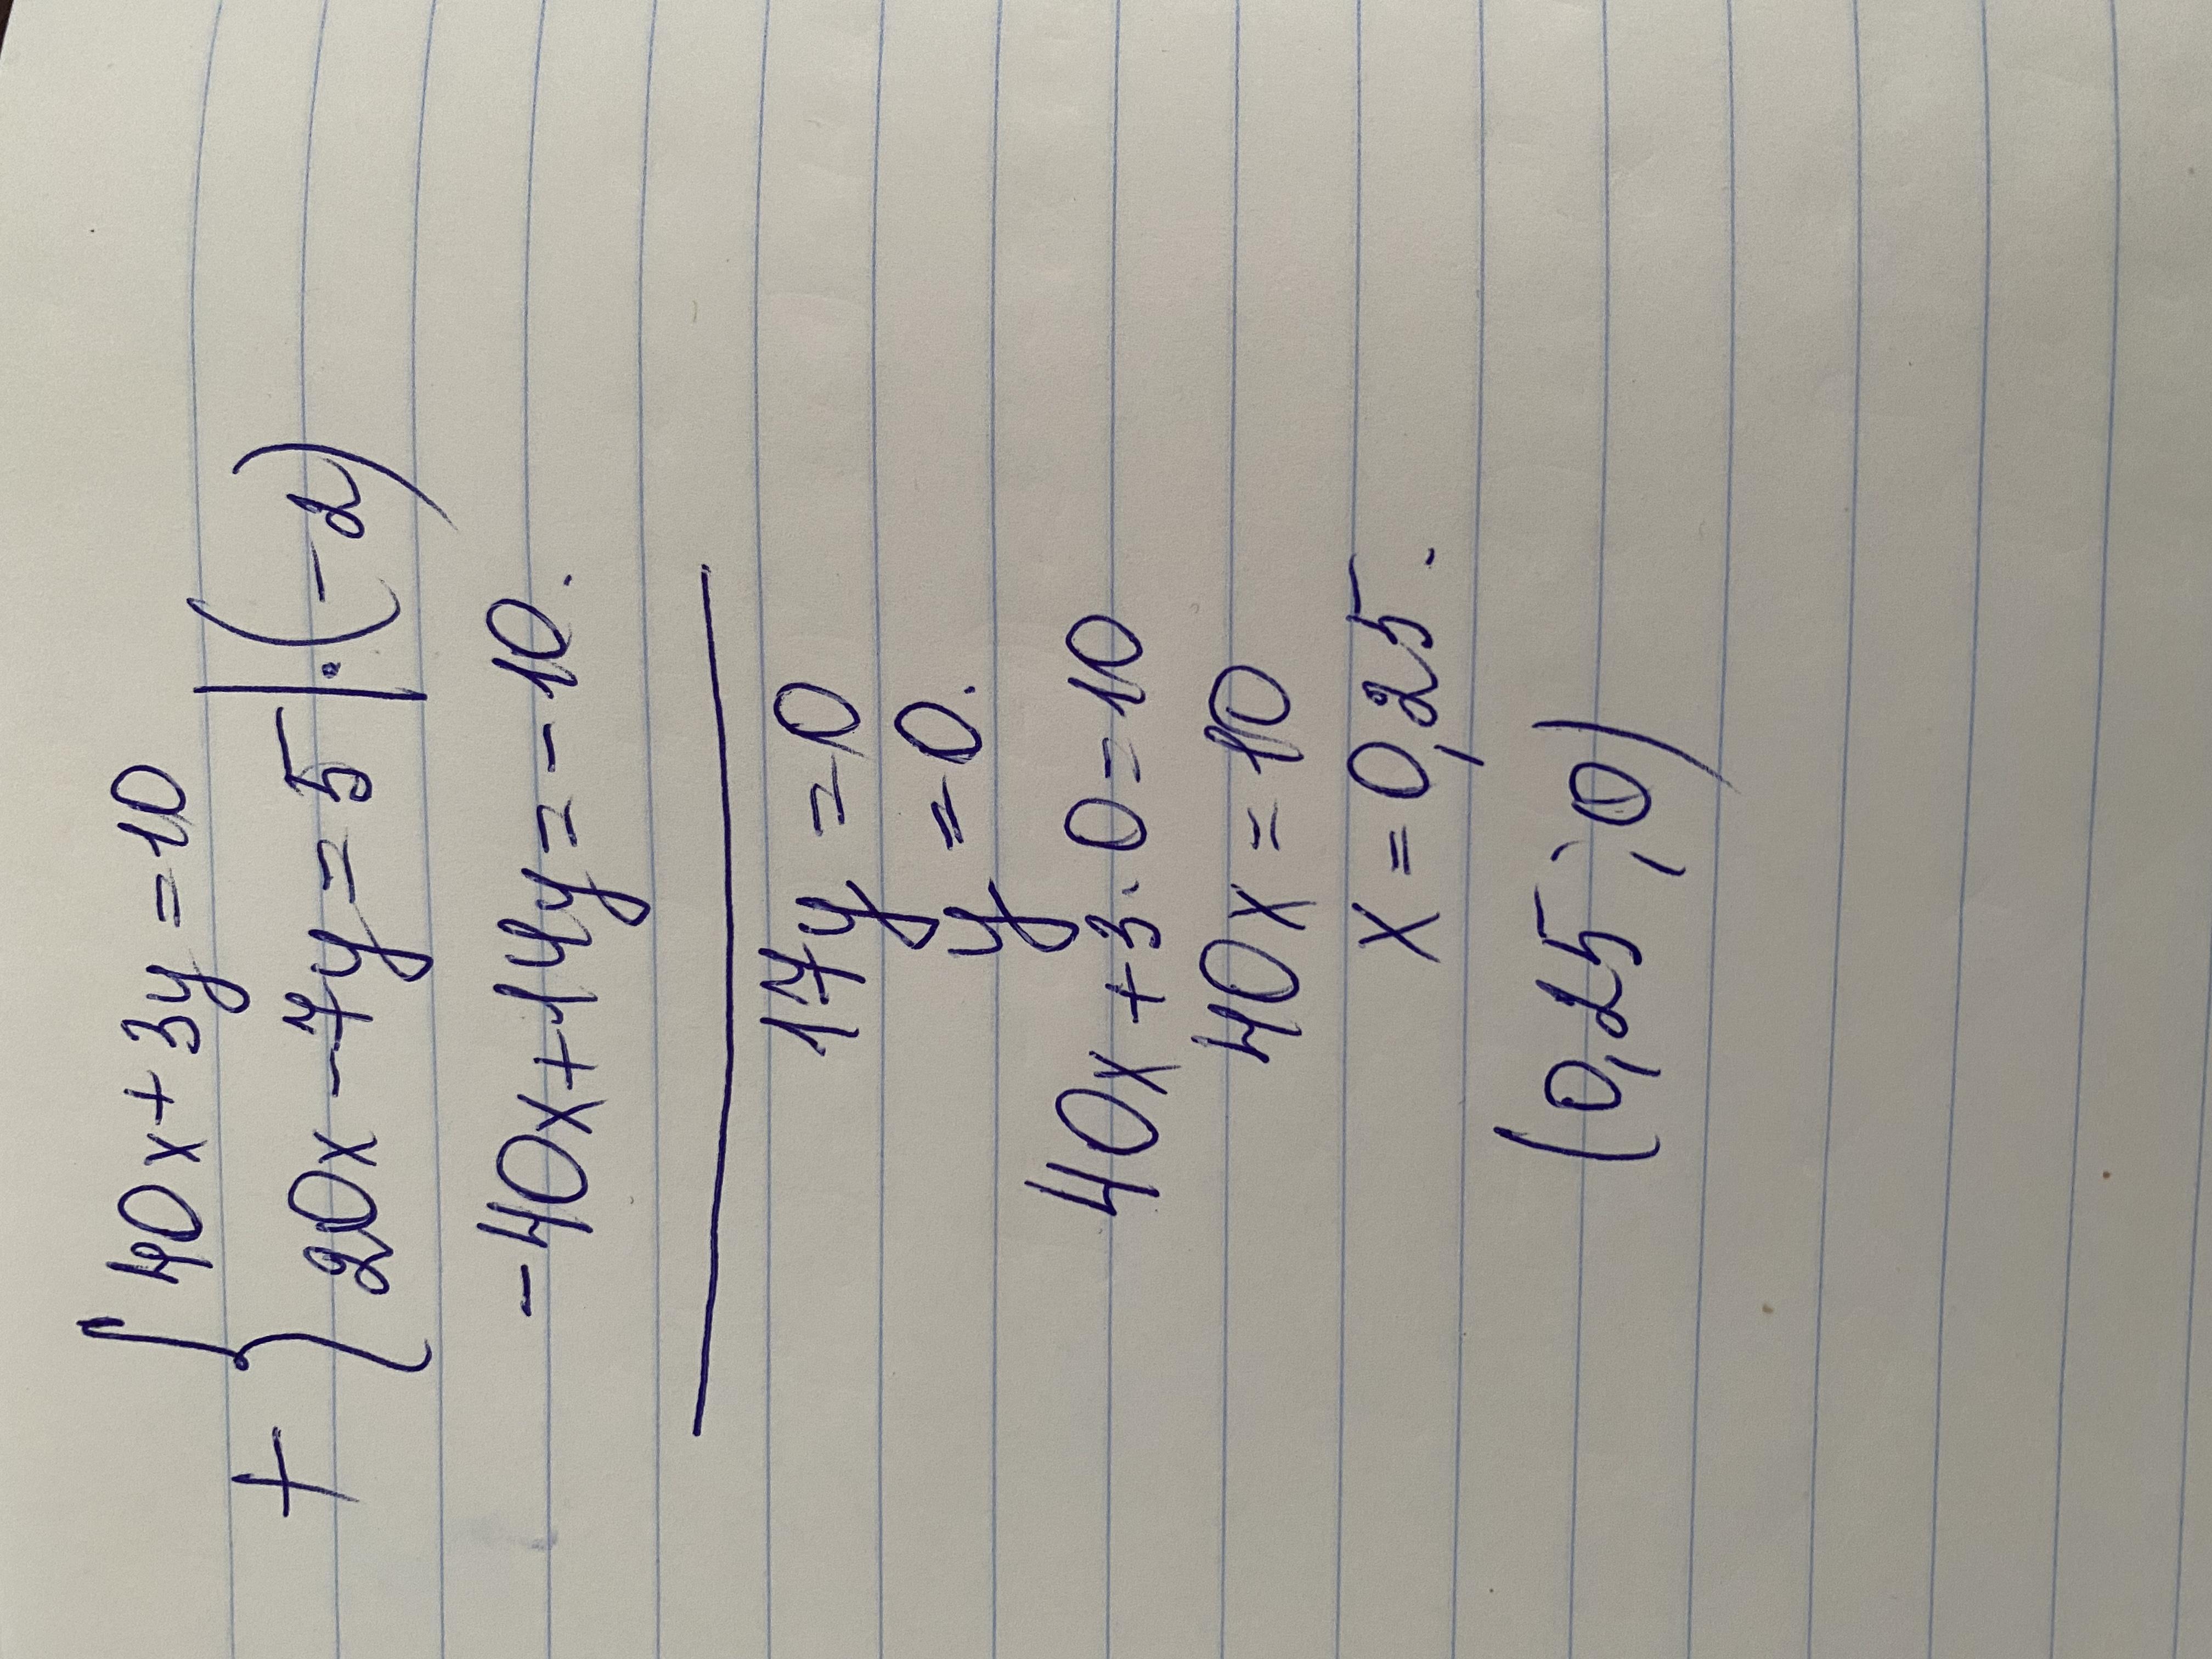 + { 40x + 3y = 10
20x - 7y = 5 | · (-2)
-40x + 14y = -10.
17y = 0
y = 0.
40x + 3 · 0 = 10
40x = 10
x = 0,25.
(0,25 ; 0)